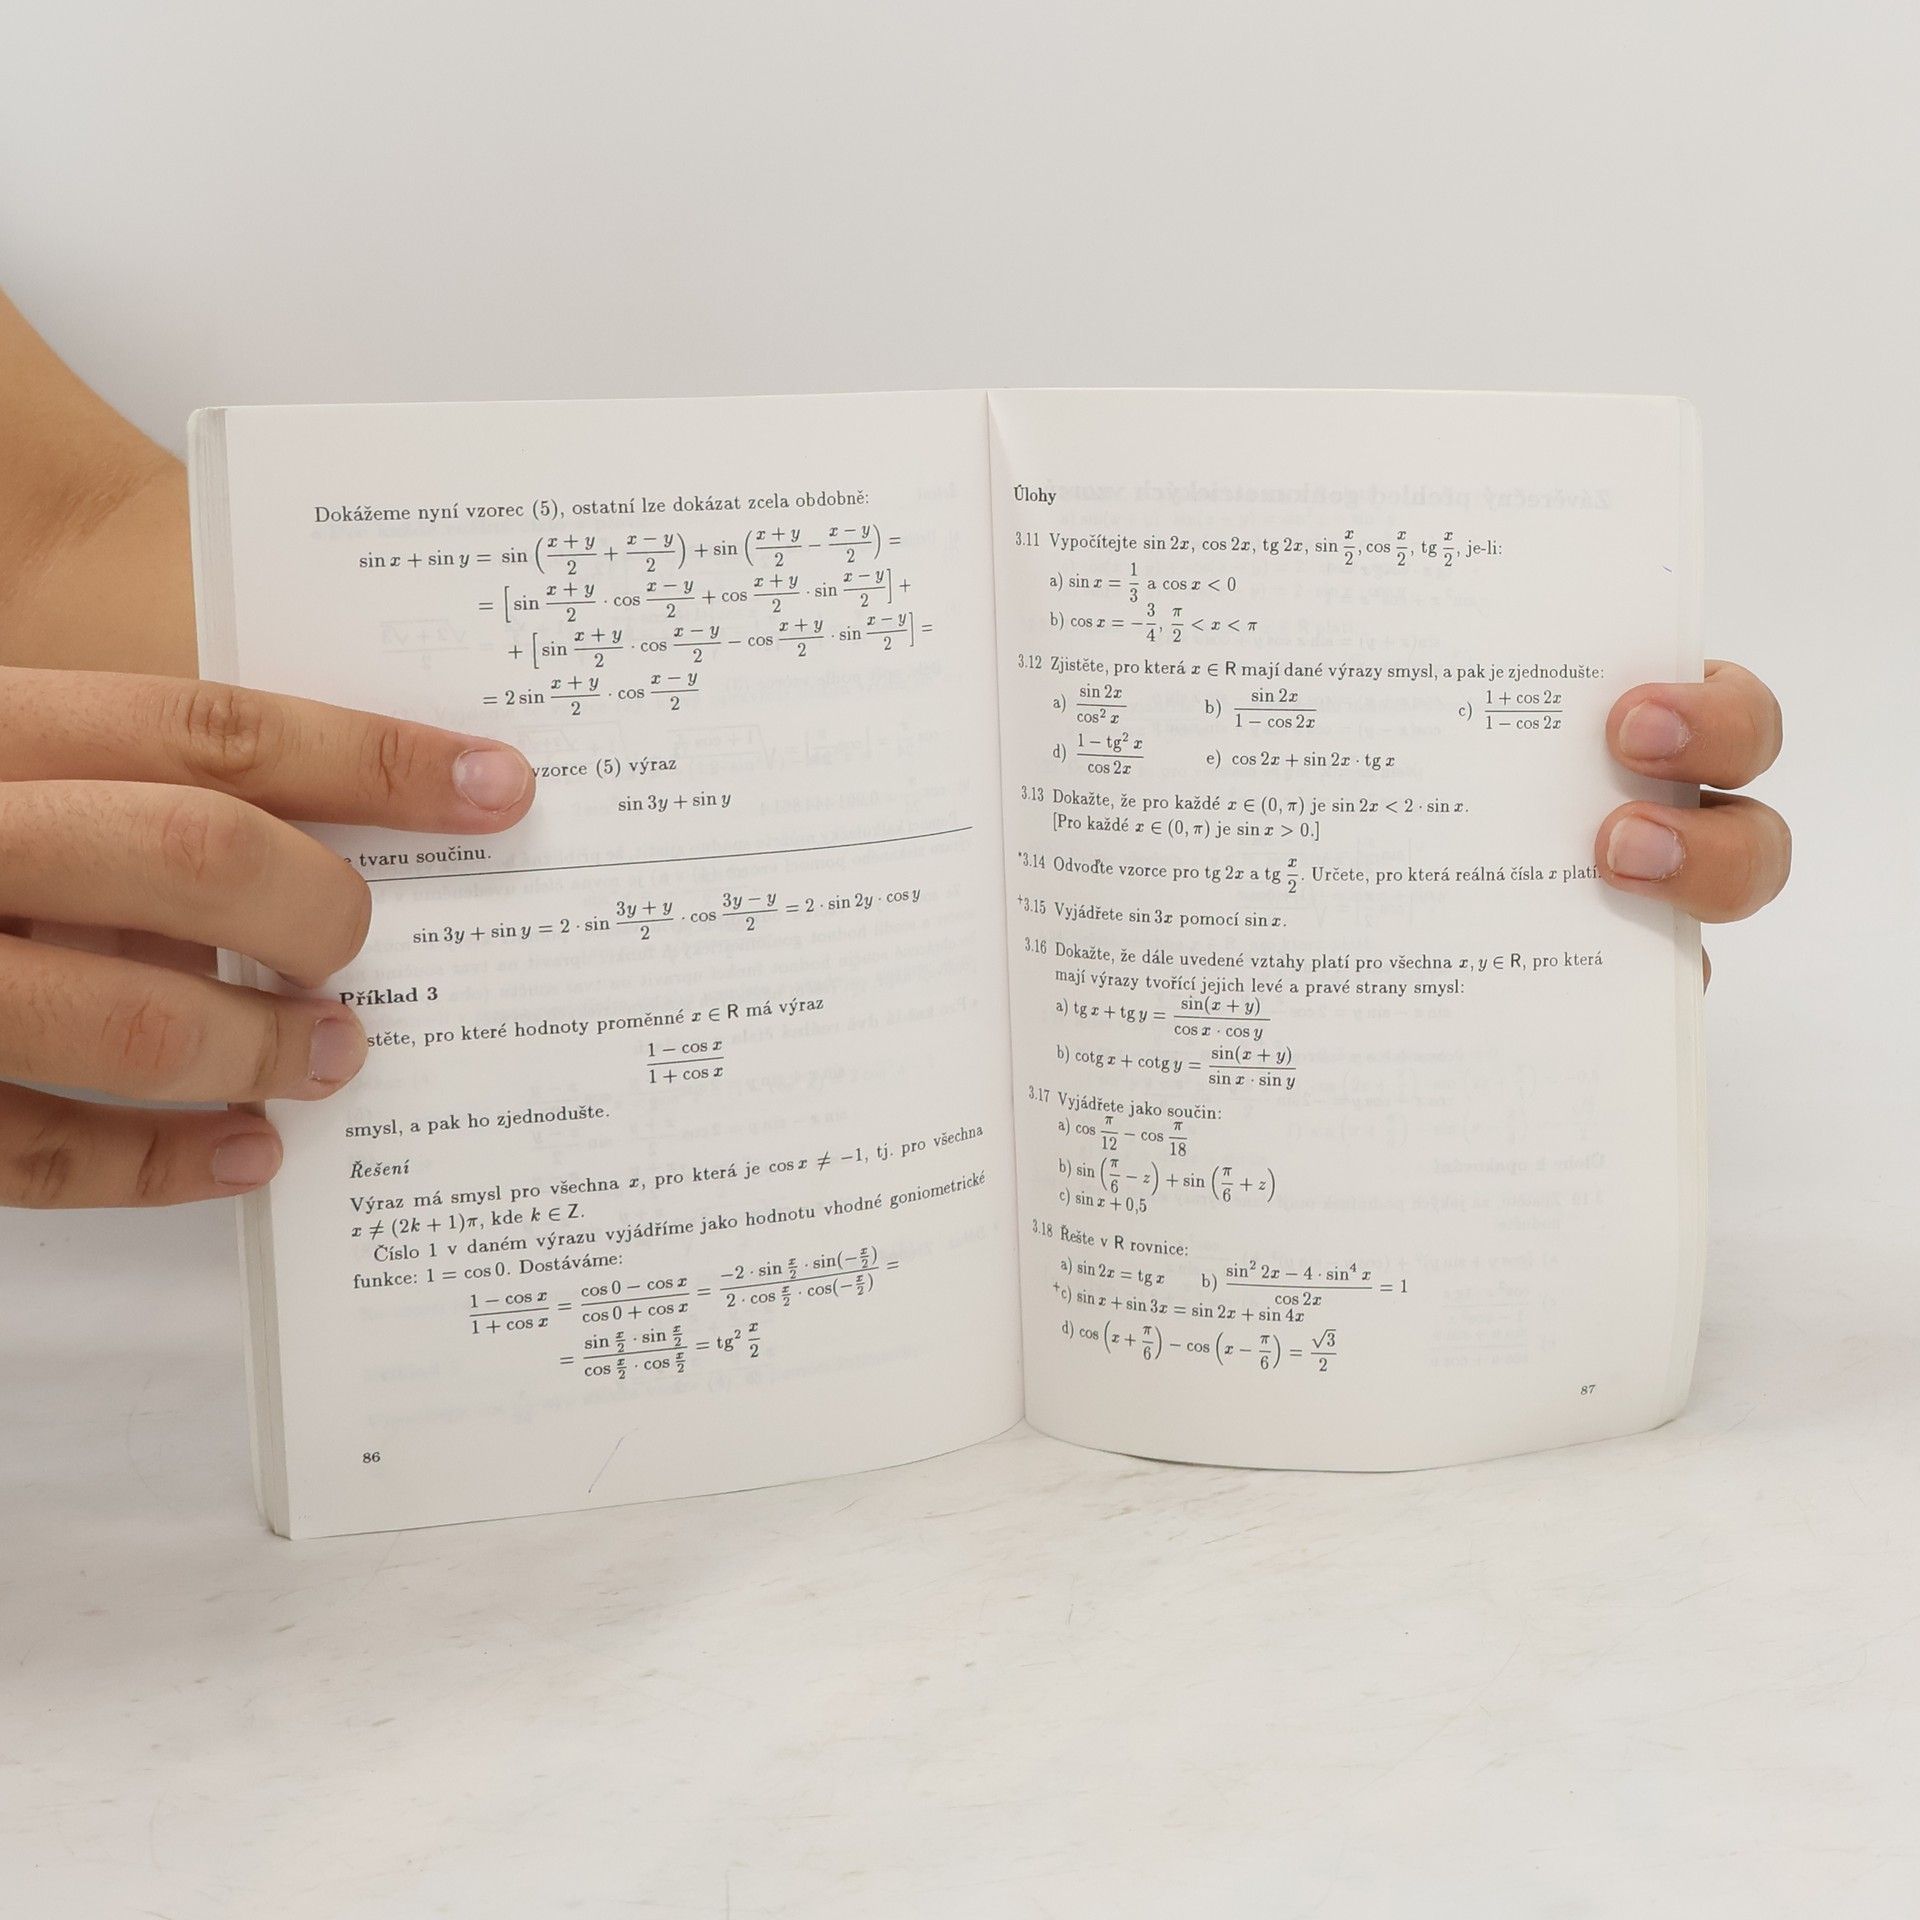 Dokážeme nyní vzorec (5), ostatní lze dokázat zcela obdobně:
sin x + sin y = sin ((x + y)/2 + (x − y)/2) + sin ((x + y)/2 − (x − y)/2) =
= [sin (x + y)/2 · cos (x − y)/2 + cos (x + y)/2 · sin (x − y)/2] +
+ [sin (x + y)/2 · cos (x − y)/2 − cos (x + y)/2 · sin (x − y)/2] =
= 2 sin (x + y)/2 · cos (x − y)/2
vzorce (5) výraz
sin 3y + sin y
tvaru součinu.
sin 3y + sin y = 2 · sin (3y + y)/2 · cos (3y − y)/2 = 2 · sin 2y · cos y
Příklad 3
stěte, pro které hodnoty proměnné x ∈ R má výraz
(1 − cos x)/(1 + cos x)
smysl, a pak ho zjednodušte.
Řešení
Výraz má smysl pro všechna x, pro která je cos x ≠ −1, tj. pro všechna
x ≠ (2k + 1)π, kde k ∈ Z.
Číslo 1 v daném výrazu vyjádříme jako hodnotu vhodné goniometrické
funkce: 1 = cos 0. Dostáváme:
(1 − cos x)/(1 + cos x) = (cos 0 − cos x)/(cos 0 + cos x) = (−2 · sin x/2 · sin(−x/2))/(2 · cos x/2 · cos(−x/2)) =
= (sin x/2 · sin x/2)/(cos x/2 · cos x/2) = tg² x/2
86
Úlohy
3.11 Vypočítejte sin 2x, cos 2x, tg 2x, sin x/2, cos x/2, tg x/2, je-li:
a) sin x = 1/3 a cos x < 0
b) cos x = −3/4, π/2 < x < π
3.12 Zjistěte, pro která x ∈ R mají dané výrazy smysl, a pak je zjednodušte:
a) sin 2x/cos² x b) sin 2x/(1 − cos 2x) c) (1 + cos 2x)/(1 − cos 2x)
d) (1 − tg² x)/cos 2x e) cos 2x + sin 2x · tg x
3.13 Dokažte, že pro každé x ∈ (0, π) je sin 2x < 2 · sin x.
[Pro každé x ∈ (0, π) je sin x > 0.]
*3.14 Odvoďte vzorce pro tg 2x a tg x/2. Určete, pro která reálná čísla x platí.
+3.15 Vyjádřete sin 3x pomocí sin x.
3.16 Dokažte, že dále uvedené vztahy platí pro všechna x, y ∈ R, pro která
mají výrazy tvořící jejich levé a pravé strany smysl:
a) tg x + tg y = sin(x + y)/(cos x · cos y)
b) cotg x + cotg y = sin(x + y)/(sin x · sin y)
3.17 Vyjádřete jako součin:
a) cos π/12 − cos π/18
b) sin (π/6 − z) + sin (π/6 + z)
c) sin x + 0,5
3.18 Řešte v R rovnice:
a) sin 2x = tg x b) (sin² 2x − 4 · sin⁴ x)/cos 2x = 1
+c) sin x + sin 3x = sin 2x + sin 4x
d) cos (x + π/6) − cos (x − π/6) = √3/2
87